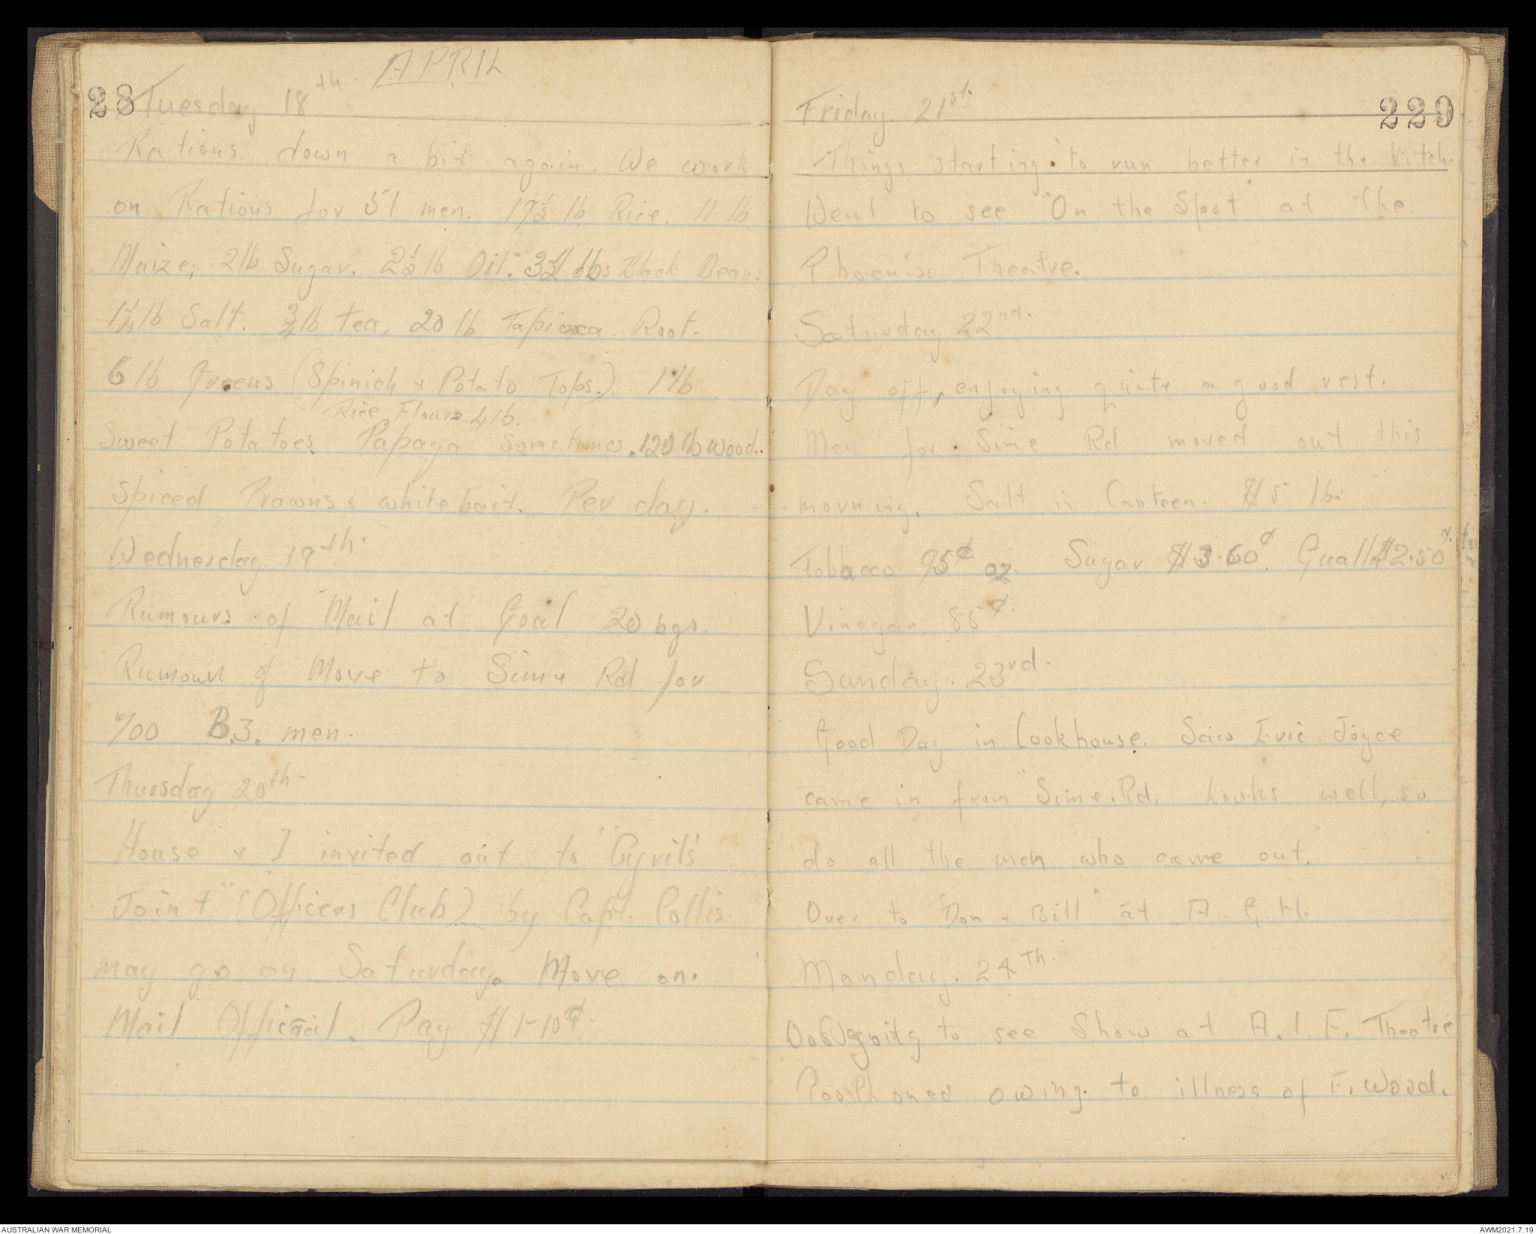 APRIL
28 Tuesday 18th.
Rations down a bit again. We work
on Rations for 51 men. 19½ lb Rice. 11 lb
Maize, 2lb Sugar. 2½ lb Oil. lbs Black Beans
1¼ lb Salt. ¾ lb tea, 20 lb Tapioca Root.
6 lb Greens (Spinich & Potato Tops.) 1 lb
Rice Flour 4lb.
Sweet Potatoes. Papaya sometimes. 120 lb wood.
Spiced Prawns & whitebait. Per day.
Wednesday 19th.
Rumours of Mail at Goal 20 bgs.
Rumour of Move to Sime Rd for
700 B.3. men.
Thursday 20th-
House & I invited out to "Cyril's
Joint" (Officers Club) by Capt. Collis
may go on Saturday. Move on.
Mail Official. Pay $1-10¢.
229
Friday 21st.
Things starting to run better in the Kitch.
Went to see "On the Spot" at the
Phoenix Theatre.
Saturday 22nd.
Day off, enjoying quite a good rest.
Men for Sime Rd moved out this
morning. Salt in Canteen. $5 lb.
Tobacco 95¢ oz. Sugar $3.60¢. $2.50
Vinegar 85¢.
Sunday. 23rd.
Good Day in Cookhouse. Saw Eric Joyce
came in from Sime.Rd. Looks well, so
do all the men who came out.
Over to "Don & Bill" at A.G.H.
Monday. 24th.
to see Show at A.I.F. Theatre
Postponed owing to illness of F. Wood.
AUSTRALIAN WAR MEMORIAL
AWM2021.7.19